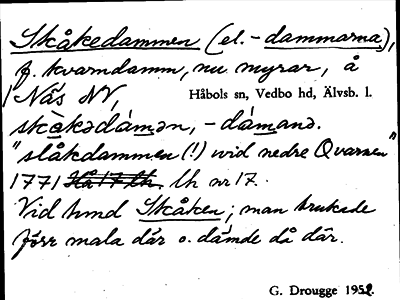 Skåkedammen (el. -dammarna),
f. kvarndamm, nu myrar, å
Näs NV, Håbols sn, Vedbo hd, Älvsb. l.
skàkədámən, -dámanə.
"slåkdammen (!) wid nedre Qvarnen"
1771 lh nr 17.
Vid hmd Skåken; man brukade
förr mala där o. dämde då där.
G. Drougge 1952.